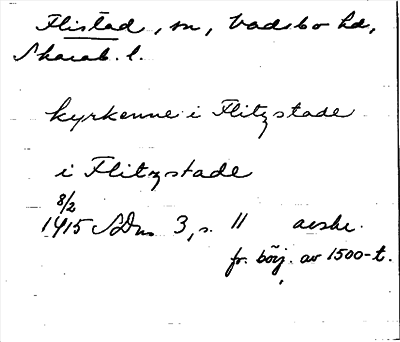 Flistad, sn, Vadsbo hd,
Skarab. l.
kyrkenne i Flitzstade
i Flitzstade
8/2
1415 SDns 3, s. 11 avskr.
fr. börj. av 1500-t.